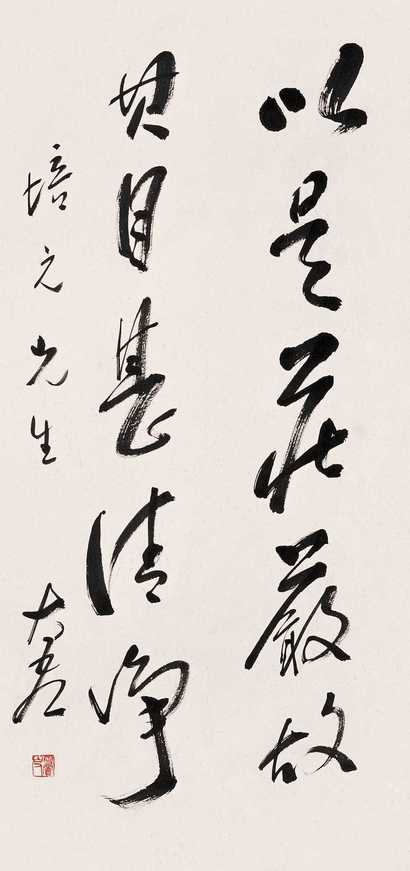 以是莊嚴故
其目甚清淨
培元先生